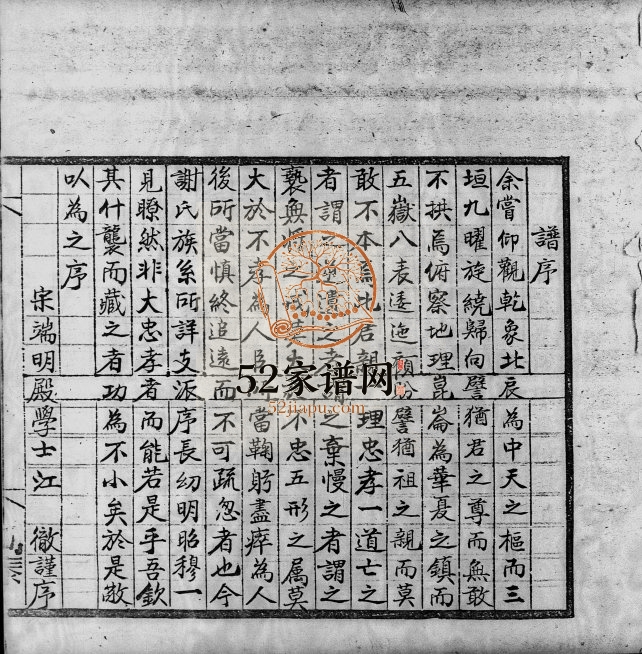 譜序
余嘗仰觀乾象北辰為中天之樞而三
垣九曜旋繞歸向譬猶君之尊而無敢
不拱焉俯察地理崑崙為華夏之鎮而
五嶽八表逶迤顧譬猶祖之親而莫
敢不本焉比君親理忠孝一道亡之
者謂之遺之者謂之棄慢之者謂之
褻無將之不忠五形之属莫
大於不孝為人臣當鞠躬盡瘁為人
後所當慎終追遠而不可疏忽者也今
謝氏族系所詳支派序長幼明昭穆一
見瞭然非大忠孝者而能若是乎吾欽
其什襲而藏之者功為不小矣於是敬
以為之序
宋端明殿學士江 徹謹序
52家谱网
52jiapu.com